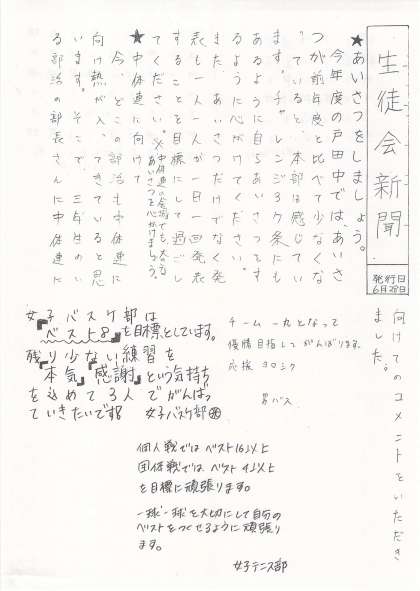 生徒会新聞
発行日
6月28日
★あいさつをしましょう。
今年度の戸田中では、あいさ
つが前年度と比べて少なくな
っていると、本部は感じてい
ます。チャレンジ3ケ条にも
あるように自らあいさつをす
るように心がけてください。
また、あいさつだけでなく発
表も一人一人が一日一回発表
することを目標にして過ごし
てください。
※中体連の会場でも大きな
あいさつを心がけましょう。
★中体連に向けて
今、どこの部活も中体連に
向け熱が入ってきていると思
います。そこで、三年生のい
る部活の部長さんに中体連に
向けてのコメントをいただき
ました。
女子バスケ部は
『ベスト8』を目標としています。
残り少ない練習を
『本気』『感謝』という気持ち
を込めて3人でがんばっ
ていきたいです!! 女子バスケ部
チーム一丸となって
優勝目指してがんばります。
応援ヨロシク
男バス
個人戦ではベスト16以上
団体戦ではベスト4以上
を目標に頑張ります。
一球一球を大切にして自分の
ベストをつくせるように頑張り
ます。
女子テニス部